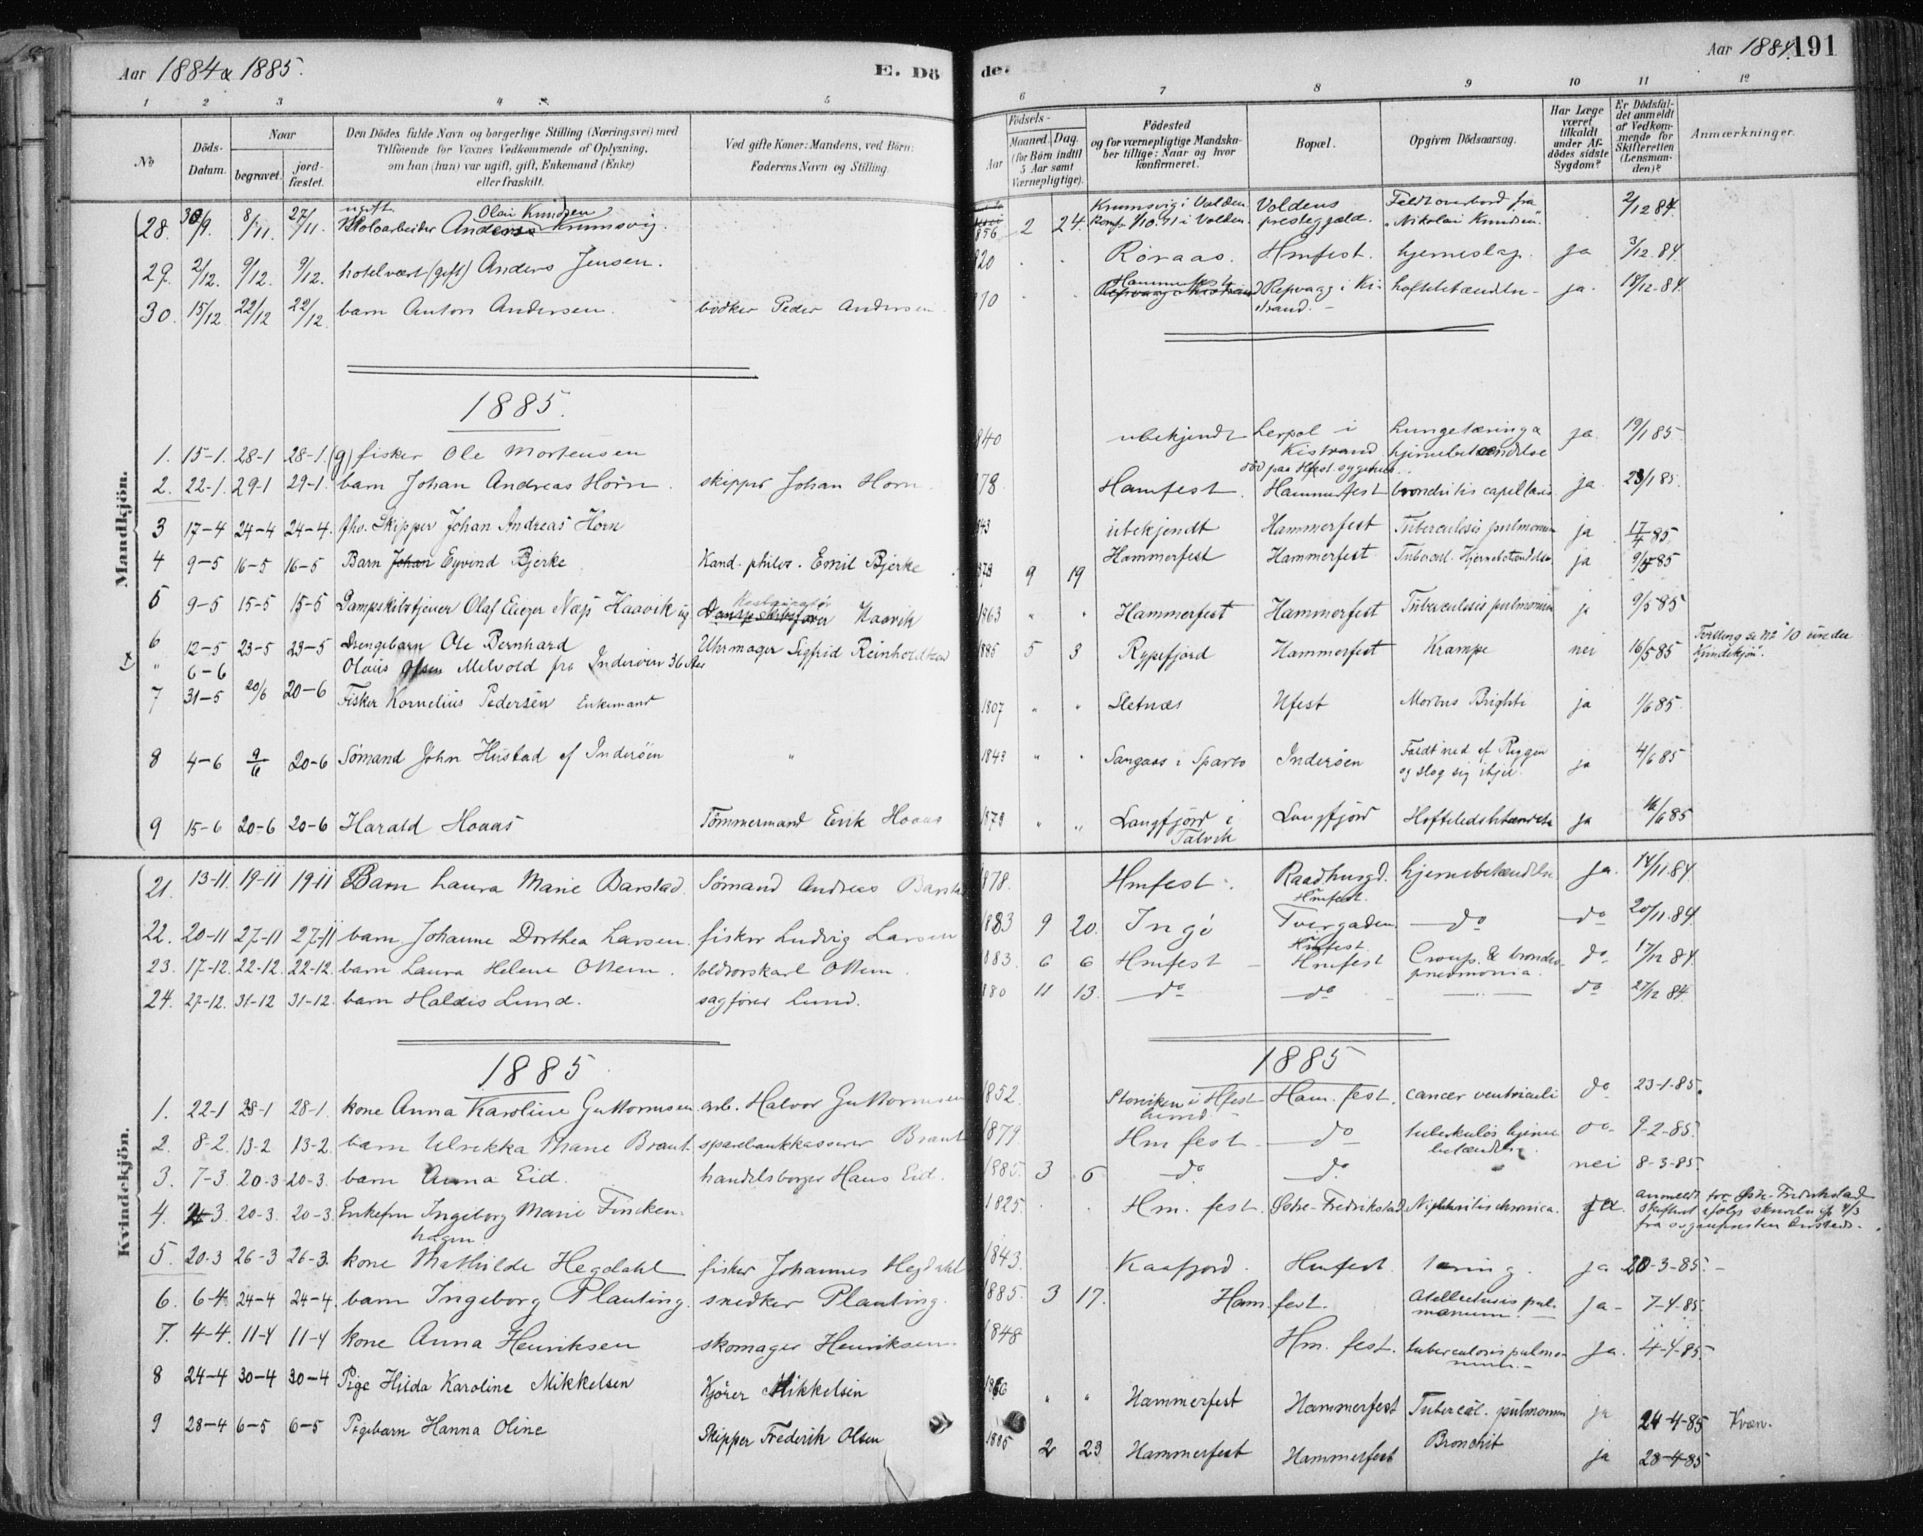 Aar 1884 & 1885.
E. Dö
de.
Aar 1884. 191
1 2 3 4 5 6 7 8 9 10 11 12
No
Döds-Datum.
Naar
begravet.
jord-fæstet.
Den Dödes fulde Navn og borgerlige Stilling (Næringsvei) med
Tilföiende for Voxnes Vedkommende af Oplysning,
om han (hun) var ugift, gift, Enkemand (Enke)
eller fraskilt.
Ved gifte Koner: Mandens, ved Börn:
Faderens Navn og Stilling.
Födsels-
Aar
Maaned. Dag.
(for Börn indtil
5 Aar samt
Værnepligtige).
Födested
og for værnepligtige Mandska-
ber tillige: Naar og hvor
konfirmeret.
Bopæl.
Opgiven Dödsaarsag.
Har Læge
været
tilkaldt
under Af-
dödes sidste
Sygdom?
Er Dödsfal-
det anmeldt
af Vedkom-
mende for
Skifteretten
(Lensman-
den)?
Anmærkninger.
Mandkjön.
28. 30/9. 8/11. 27/11. ugift Anders Olai Knudsen Krumsvig. 1856 2 24. Krumsvig i Volden. Konf. 1/10.71 i Volden. Voldens prestegjæld. Faldt overbord fra "Nikolai Knudsen". 2/12 84.
29. 2/12. 9/12. 9/12. hotelvært (gift) Anders Jensen. 820 Röraas. Hmfest. hjerneslag. ja 3/12 84.
30. 15/12 22/12 22/12. barn Anton Andersen. bödker Peder Andersen 70 Hammerfest Repvaag i Kistrand. hoftebetændelse ja. 18/12-84.
1885.
1. 15-1. 28-1 28-1. (g) fisker Ole Mortensen 840 ubekjendt Lerpol i Kistrand död paa Hfest. sygehus. Lungetæring & hjernebetændelse ja. 19/1 85.
2. 22-1. 29-1 29-1. barn Johan Andreas Horn. skipper Johan Horn. 78. Hamfest. Hammerfest bronchitis capillaris. ja. 23/1 85.
3 17-4 24-4 24-4. fhv. Skipper Johan Andreas Horn 843 ubekjendt Hammerfest Tuberculosis pulmonum ja 17/4 85
4 9-5 16-5 16-5 Barn Johan Eyvind Bjerke Kand. philos. Emil Bjerke. 9 19 Hammerfest Hammerfest Tubercul. Hjernebetændelse ja 9/5 85
5 9-5 15-5 15-5 Dampskibstjener Olaf Næss Haavik ug. Dampskibsförer Restauratör Haavik 1863 " " Hammerfest Hammerfest Tuberculosis pulmonum ja 9/5 85
6 12-5 23-5 23-5 Drengebarn Ole Bernhard Uhrmager Sigfrid Reinholdtsen 1885 5 3 Rypefjord Hammerfest Krampe nei 16/5 85 No 10 under Kvindekjön.
" 6-6 Olaus Olsen Melvold fra Inderöen 36 Aar
7 31-5 20/6 20-6 Fisker Kornelius Pedersen Enkemand 1807 " " Sletnæs Hfest Morbus Brighti ja 1/6 85.
8 4-6 9/6 20-6 Sömand John Hustad af Inderöen " 1843 " " Sangaas i Sparbo Inderöen Faldt ned af Riggen og slog sig ihjel. ja 4/6 85
9 15-6 20-6 20-6 Harald Hoaas Tömmermand Erik Hoaas 1879 " " Langfjord i Talvik Langfjord Hofteledsbetændelse ja 16/6 85
Kvindekjön.
21. 13-11. 19-11 19-11 Barn Laura Marie Barstad. Sömand Andreas Barstad 1878. Hmfest. Raadhusgd. Hmfest. hjernebetændelse ja. 14/11.84.
22. 20-11 27-11 27-11 barn Johanne Dorthea Larsen. fisker Ludvig Larsen 1883 9 20. Ingö Tvergaden Hmfest. do do 20/11.84.
23. 17-12. 22-12. 22-12. barn Laura Helene Ottem. Ottem. 1883. 6 6 Hmfest Hmfest Croup. & broncho-pneumonia. do. 17/12 84.
24. 27-12. 31-12 31-12. barn Haldis Lund. sagförer Lund. 880 11 13. do do do 27/12 84.
1885
1885
1. 22-1 28-1 28-1. kone Anna Karoline Guttormsen arb. Halvor Guttormsen 1852. Storviken i Hfest Ham. fest. cancer ventriculi do 23-1.85.
2. 8-2. 13-2 13-2. barn Ulrikka Marie Brant. sparebankkasserer Brant 1879. Hmfest. do tuberkulös hjernebetændelse. do- 9-2-85.
3. 7-3. 20-3 20-3. barn Anna Eid. handelsborger Hans Eid. 1885. 3 6 do. do. nei 8-3-85.
4. 4-3. 20-3. 20-3. Enkefru Ingeborg Marie Fincken-hagen. 1825. Hm. fest. Östre-Fredrikstad. Nephritis chronica. ja. anmeldt for Östre-Fredrikstad skifteret
5. 20-3 26-3 26-3. kone Mathilde Hegdahl fisker Johannes Hegdahl 1843. Kaafjord. Hmfest. tæring. ja 20-3-85.
6. 6-4. 24-4 24-4. barn Ingeborg Planting. snedker Planting. 1885. 3 17. Ham.fest. Atelectasis pulmonum. ja- 7-4-85.
7. 4-4. 11-4 11-4 kone Anna Henriksen skomager Henriksen. 1848 Hm. fest. tuberculosis pulmonum. ja. 4-4-85.
8 24-4 30-4 30-4 Pige Hilda Karoline Mikkelsen Kjörer Mikkelsen 1866 " " Hammerfest Hammerfest Tubercul. pulmonum ja 24-4-85 Kvæn.
9 28-4 6-5 6-5 Pigebarn Hanna Oline Skipper Frederik Olsen 1885 2 23 Hammerfest Hammerfest Bronchit ja 28-4-85